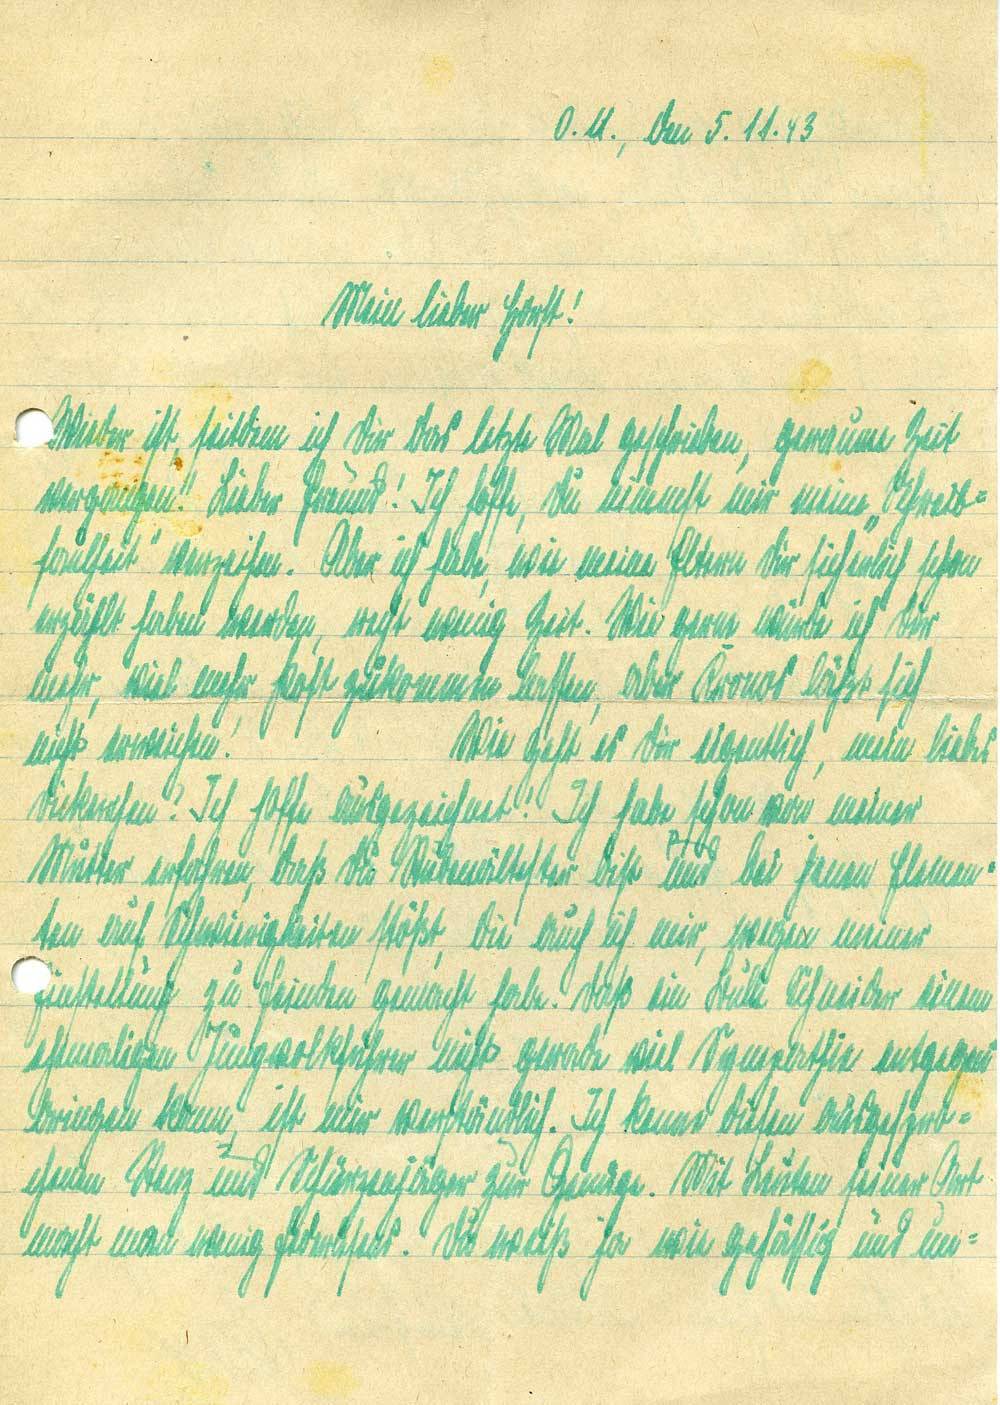 O.U., den 5.11.43
Mein lieber Horst!
Wieder ist, seitdem ich Dir das letzte Mal geschrieben, geraume Zeit
vergangen!! Lieber Freund! Ich hoffe, Du nimmst mir meine „Schreib=
faulheit" verzeihen. Aber ich habe, wie meine Eltern Dir sicherlich schon
erzählt haben werden, recht wenig Zeit. Wie gerne würde ich Dir
mehr, viel mehr Post zukommen lassen, aber Kronos läßt sich
nicht erweichen! Wie geht es Dir eigentlich, mein liebes
? Ich hoffe ausgezeichnet! Ich habe schon von meiner
Mutter erfahren, daß Du Stubenältester bist und bei jenen Elemen=
ten auf Schwierigkeiten stößt, die auch ich mir, wegen meiner
Einstellung zu Feinden gemacht habe. Daß ein Schneider einem
ehemaligen Jungvolkführer nicht gerade viel Sympathie entgegen
bringen kann, ist mir verständlich. Ich kenne diesen ausgespro=
chenen und Schürzenjäger zur Genüge. Mit Leuten seiner Art
macht man wenig Federlesens. Du weißt ja wie gehässig und un=